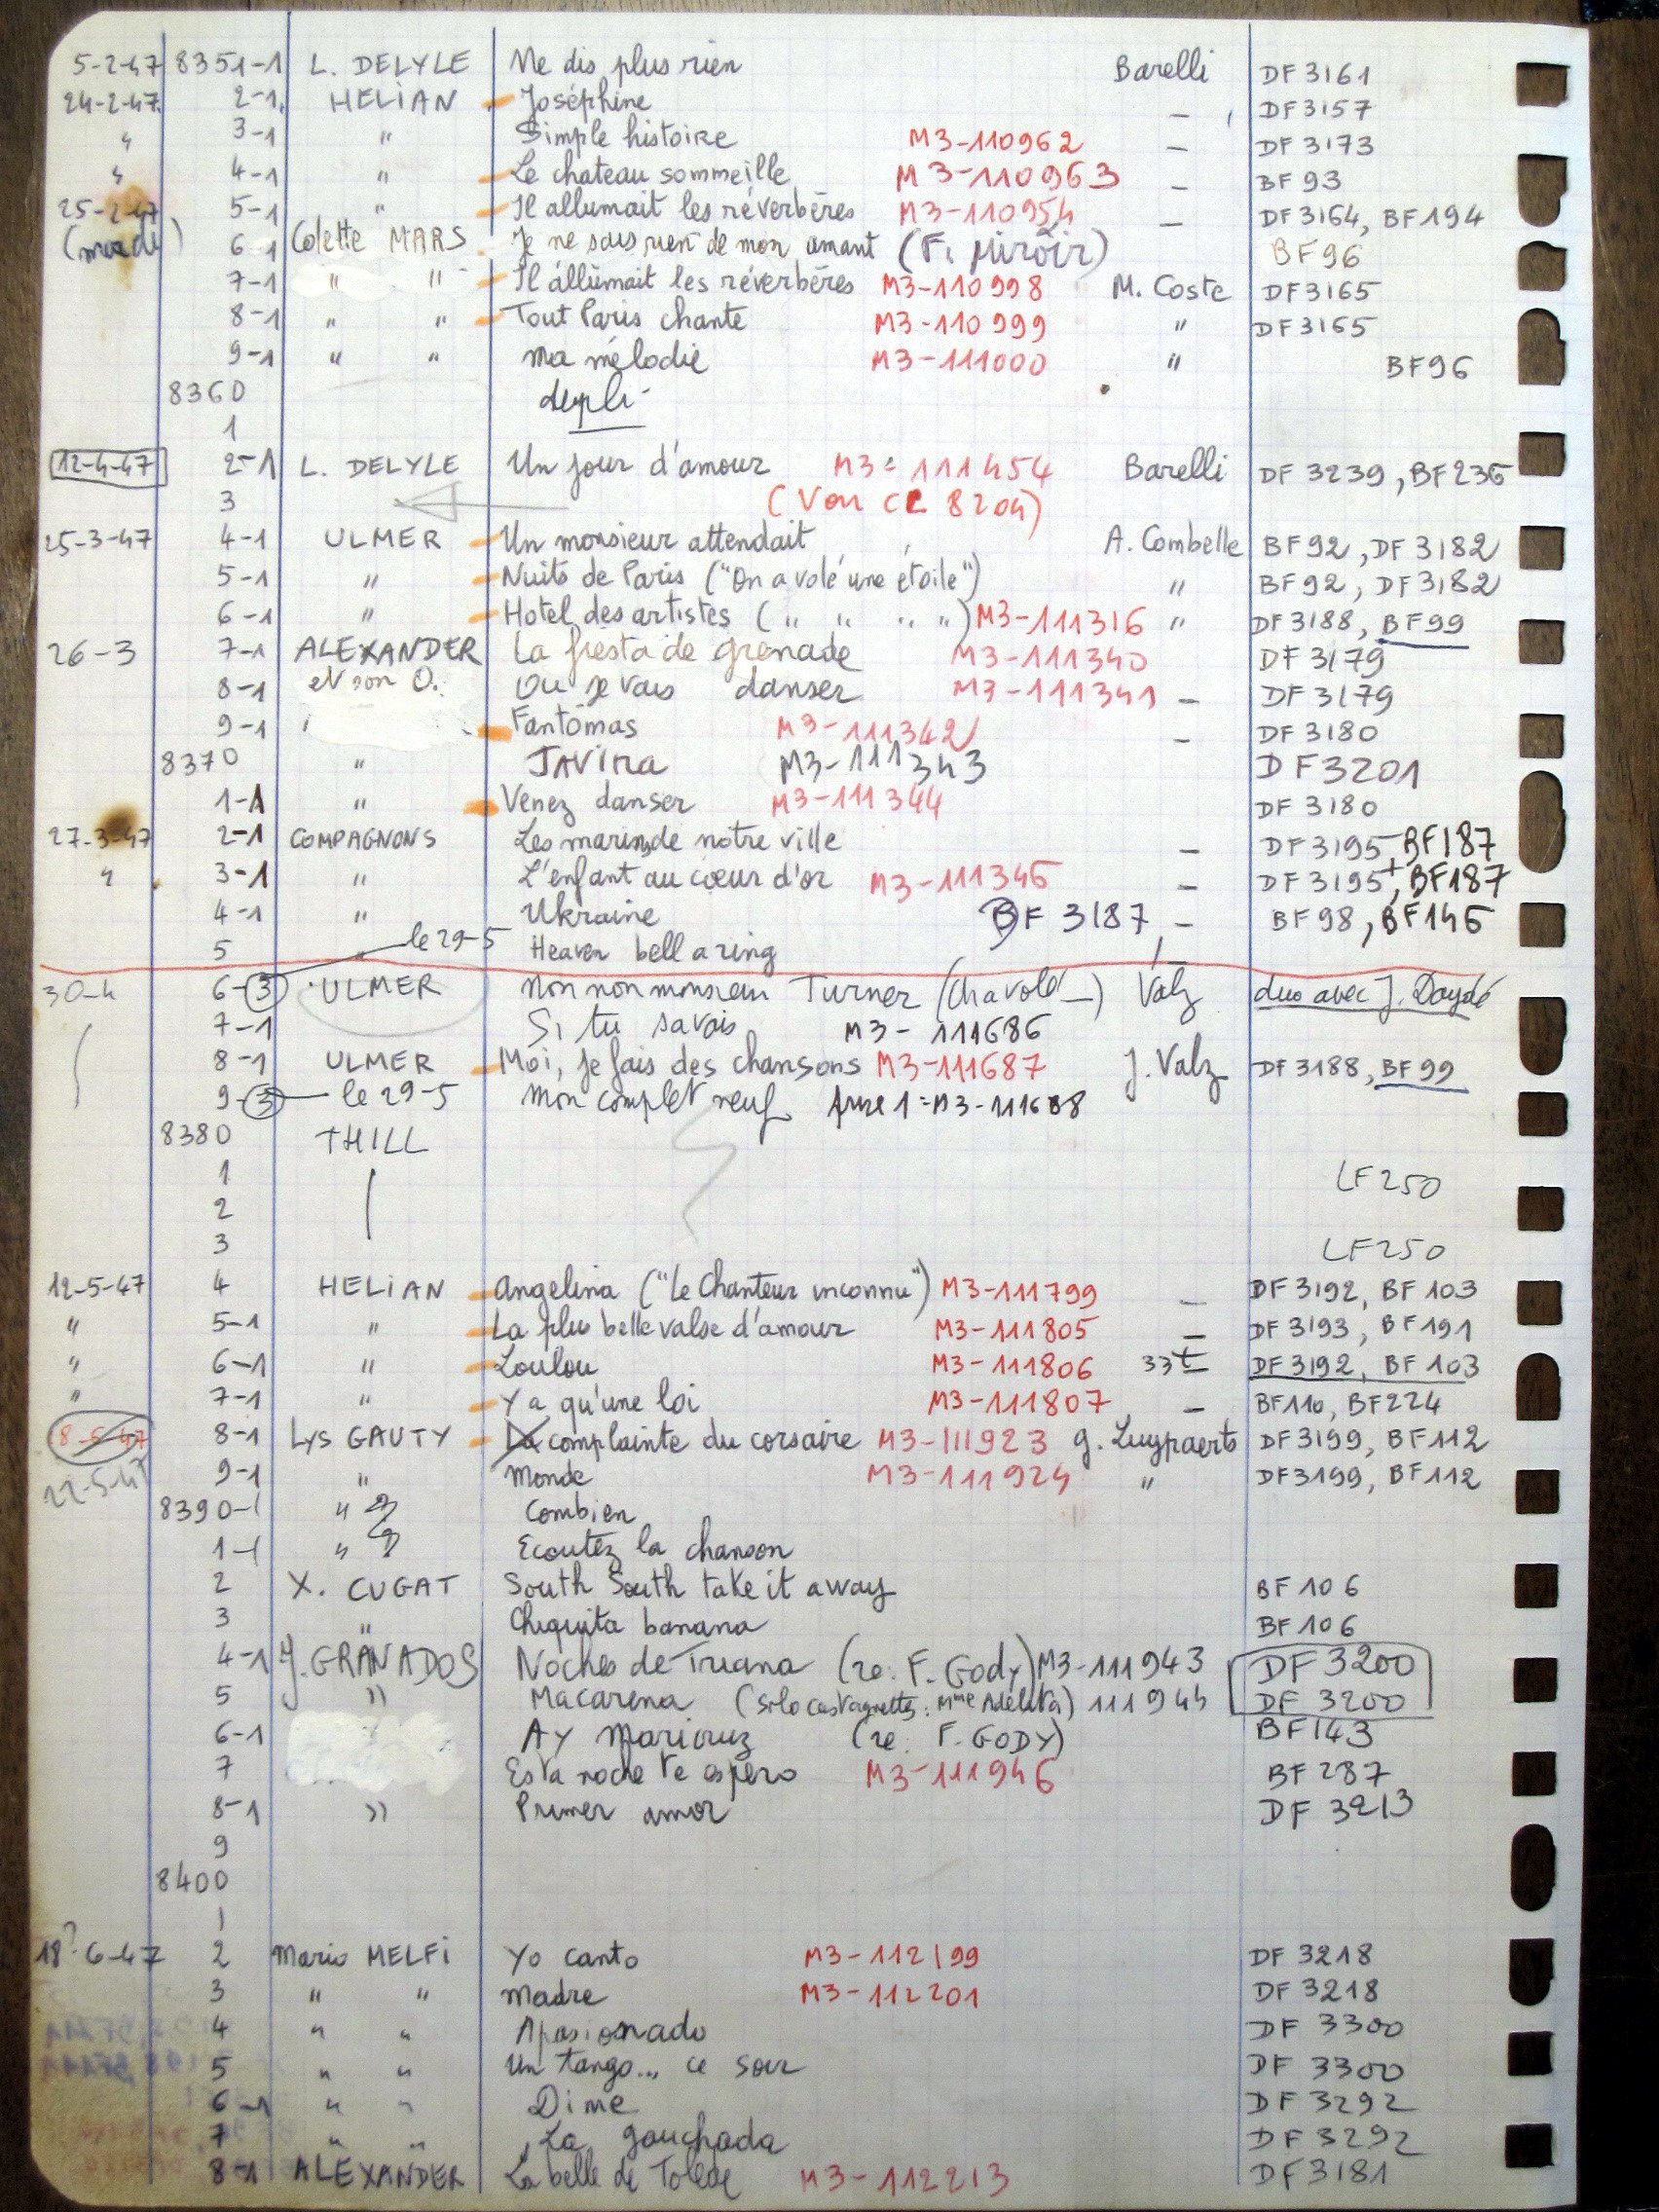 5-2-47 8351-1 L. DELYLE Ne dis plus rien Barelli DF 3161
24-2-47 2-1 HELIAN Joséphine – DF 3157
" 3-1 " Simple histoire M3-110962 – DF 3173
" 4-1 " Le chateau sommeille M3-110963 – BF 93
25-2-47 5-1 " Il allumait les réverbères M3-110954 – DF 3164, BF 194
(mardi) 6-1 Colette MARS Je ne sais rien de mon amant (F. Miroir) BF 96
7-1 " " Il allumait les réverbères M3-110998 M. Coste DF 3165
8-1 " " Tout Paris chante M3-110999 " DF 3165
9-1 " " Ma mélodie M3-111000 " BF 96
8360
1
12-4-47 2-1 L. DELYLE Un jour d'amour M3-111454 Barelli DF 3239, BF 236
3 (Voir CL 8204)
25-3-47 4-1 ULMER Un monsieur attendait A. Combelle BF 92, DF 3182
5-1 " Nuits de Paris ("On a volé une étoile") " BF 92, DF 3182
6-1 " Hotel des artistes ( " " " " ) M3-111316 " DF 3188, BF 99
26-3 7-1 ALEXANDER La fiesta de grenade M3-111340 DF 3179
8-1 et son O. Ou je vais danser M3-111341 – DF 3179
9-1 Fantômas M3-111342 – DF 3180
8370 " JAVINA M3-111343 DF 3201
1-1 " Venez danser M3-111344 DF 3180
27-3-47 2-1 COMPAGNONS Les marins de notre ville – DF 3195 – BF 187
" 3-1 " L'enfant au cœur d'or M3-111346 – DF 3195 +, BF 187
4-1 " Ukraine BF 3187 – BF 98, BF 146
5 " le 29-5 Heaven bell a ring
30-4 6-3 ULMER Non non monsieur Turner (Cha volé –) Valz duo avec J. Daydé
7-1 Si tu savais M3-111686
8-1 ULMER Moi, je fais des chansons M3-111687 J. Valz DF 3188, BF 99
9-3 le 29-5 Mon complet neuf prise 1 = M3-111688
8380 THILL
1 LF 250
2
3 LF 250
12-5-47 4 HELIAN Angelina ("Le Chanteur inconnu") M3-111799 – DF 3192, BF 103
" 5-1 " La plus belle valse d'amour M3-111805 – DF 3193, BF 191
" 6-1 " Loulou M3-111806 33t DF 3192, BF 103
" 7-1 " Y a qu'une loi M3-111807 – BF 110, BF 224
8-5-47 8-1 Lys GAUTY La complainte du corsaire M3-111923 G. Luypaerts DF 3199, BF 112
22-5-47 9-1 " Monde M3-111924 " DF 3199, BF 112
8390-1 " Combien
1-1 " Ecoutez la chanson
2 X. CUGAT South South take it away BF 106
3 " Chiquita banana BF 106
4-1 J. GRANADOS Noches de Triana (re. F. Gody) M3-111943 DF 3200
5 " Macarena (solo castagnettes : Mme Adelita) 111944 DF 3200
6-1 AY Maricruz (re. F. GODY) BF 143
7 Esta noche te espero M3-111946 BF 287
8-1 " Primer amor DF 3213
9
8400
1
18?-6-47 2 Mario MELFI Yo canto M3-112199 DF 3218
3 " " Madre M3-112201 DF 3218
4 " " Apasionado DF 3300
5 " " Un tango... ce soir DF 3300
6-1 " " Dime DF 3292
7 " " La gauchada DF 3292
8-1 ALEXANDER La belle de Tolède M3-112213 DF 3181